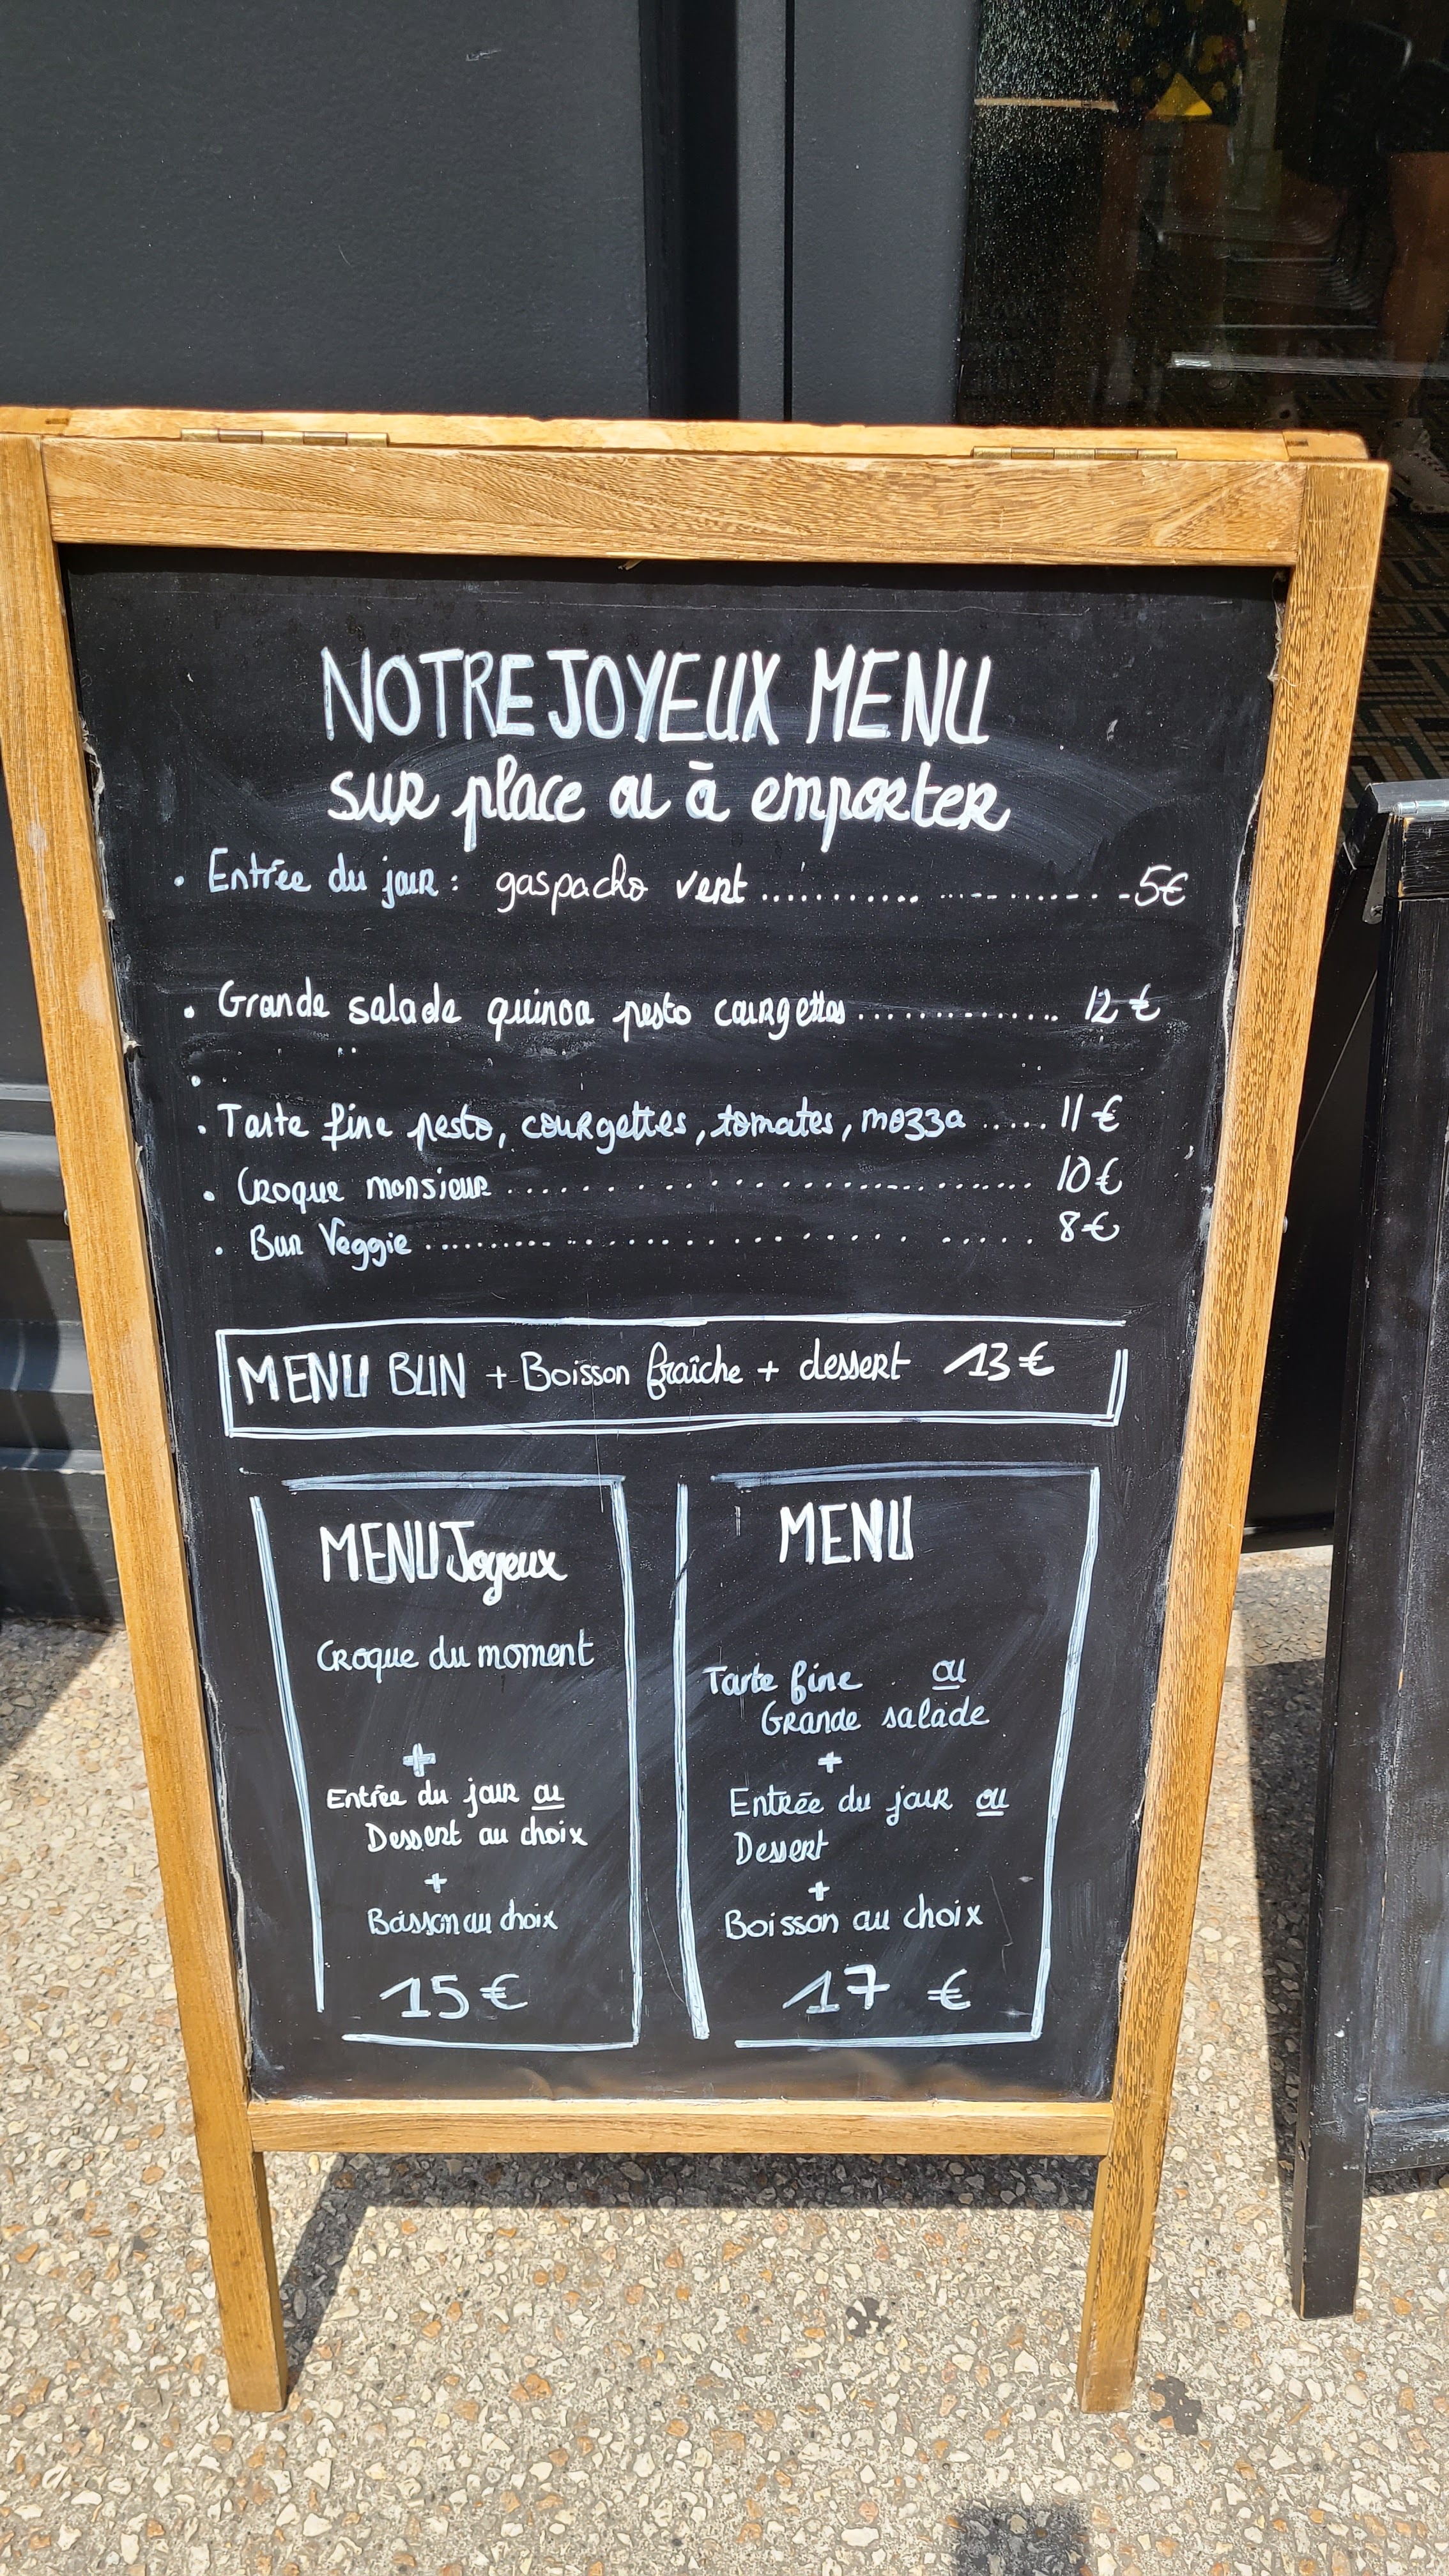 NOTRE JOYEUX MENU
sur place ou à emporter
• Entrée du jour : gaspacho vert .................... 5€
• Grande salade quinoa pesto courgettes .............. 12€
•
• Tarte fine pesto, courgettes, tomates, mozza ..... 11€
• Croque monsieur .............................. 10€
• Bun Veggie .............................. 8€
MENU BUN + Boisson fraîche + dessert 13€
MENU Joyeux
Croque du moment
+
Entrée du jour ou
Dessert au choix
+
Boisson au choix
15€
MENU
Tarte fine ou
Grande salade
+
Entrée du jour ou
Dessert
+
Boisson au choix
17 €